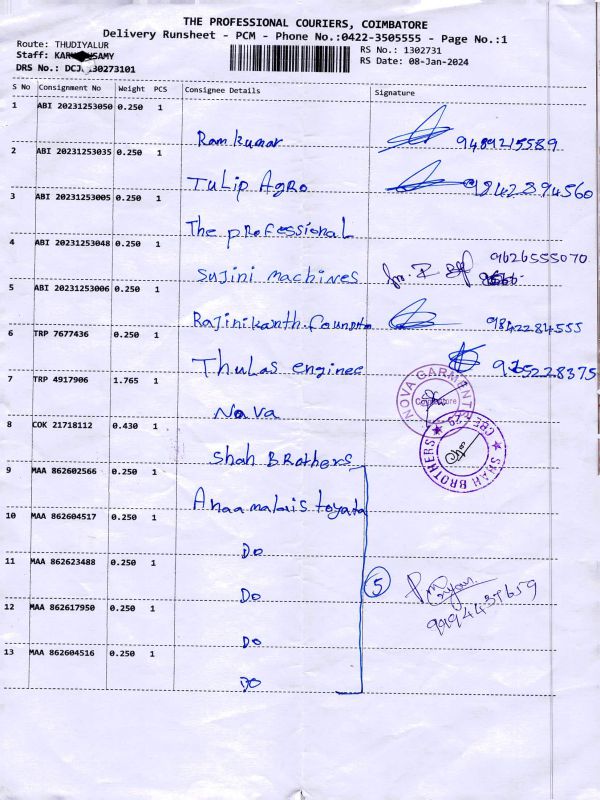 THE PROFESSIONAL COURIERS, COIMBATORE
Delivery Runsheet - PCM - Phone No.:0422-3505555 - Page No.:1
Route: THUDIYALUR
RS No.: 1302731
Staff:
RS Date: 08-Jan-2024
DRS No.:
S No Consignment No Weight PCS Consignee Details Signature
1 ABI 20231253050 0.250 1
Ram kumar 9489215589
2 ABI 20231253035 0.250 1
Tulip Agro 9842894560
3 ABI 20231253005 0.250 1
The professional
4 ABI 20231253048 0.250 1
9626555070
Sujini machines
5 ABI 20231253006 0.250 1
Rajinikanth. 9842284555
6 TRP 7677436 0.250 1
Thulas enginee 9365228375
7 TRP 4917906 1.765 1
NOVA GARMENT
Coimbatore
Nova
8 COK 21718112 0.430 1
SHAH BROTHERS CBE
Shah BRothers
9 MAA 862602566 0.250 1
10 MAA 862604517 0.250 1
DO
11 MAA 862623488 0.250 1
5
DO
9994437659
12 MAA 862617950 0.250 1
DO
13 MAA 862604516 0.250 1
DO